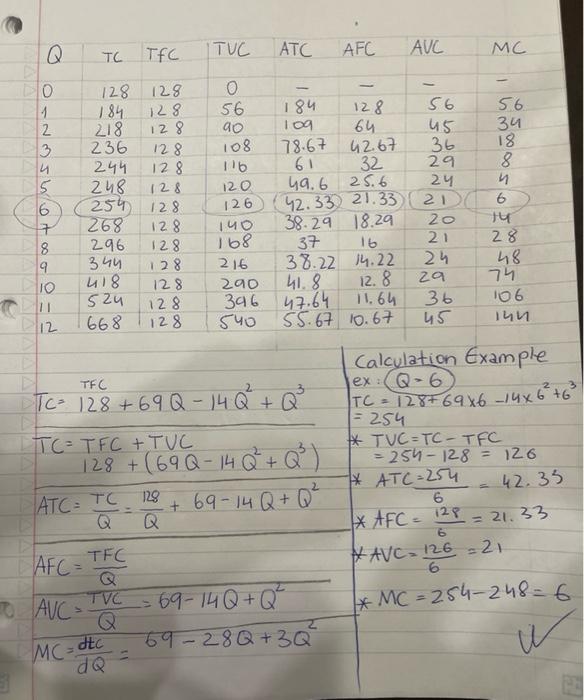 Q TC TFC TVC ATC AFC AVC MC
0 128 128 0 – – – –
1 184 128 56 184 128 56 56
2 218 128 90 109 64 45 34
3 236 128 108 78.67 42.67 36 18
4 244 128 116 61 32 29 8
5 248 128 120 49.6 25.6 24 4
6 254 128 126 42.33 21.33 21 6
7 268 128 140 38.29 18.29 20 14
8 296 128 168 37 16 21 28
9 344 128 216 38.22 14.22 24 48
10 418 128 290 41.8 12.8 29 74
11 524 128 396 47.64 11.64 36 106
12 668 128 540 55.67 10.67 45 144
TFC
TC = 128 + 69Q - 14Q² + Q³
TC = TFC + TVC
128 + (69Q - 14Q² + Q³)
ATC = TC/Q = 128/Q + 69 - 14Q + Q²
AFC = TFC/Q
AVC = TVC/Q = 69 - 14Q + Q²
MC = dtc/dQ = 69 - 28Q + 3Q²
Calculation Example
ex: Q = 6
TC = 128 + 69×6 - 14×6² + 6³
= 254
* TVC = TC - TFC
= 254 - 128 = 126
* ATC = 254/6 = 42.33
* AFC = 128/6 = 21.33
* AVC = 126/6 = 21
* MC = 254 - 248 = 6